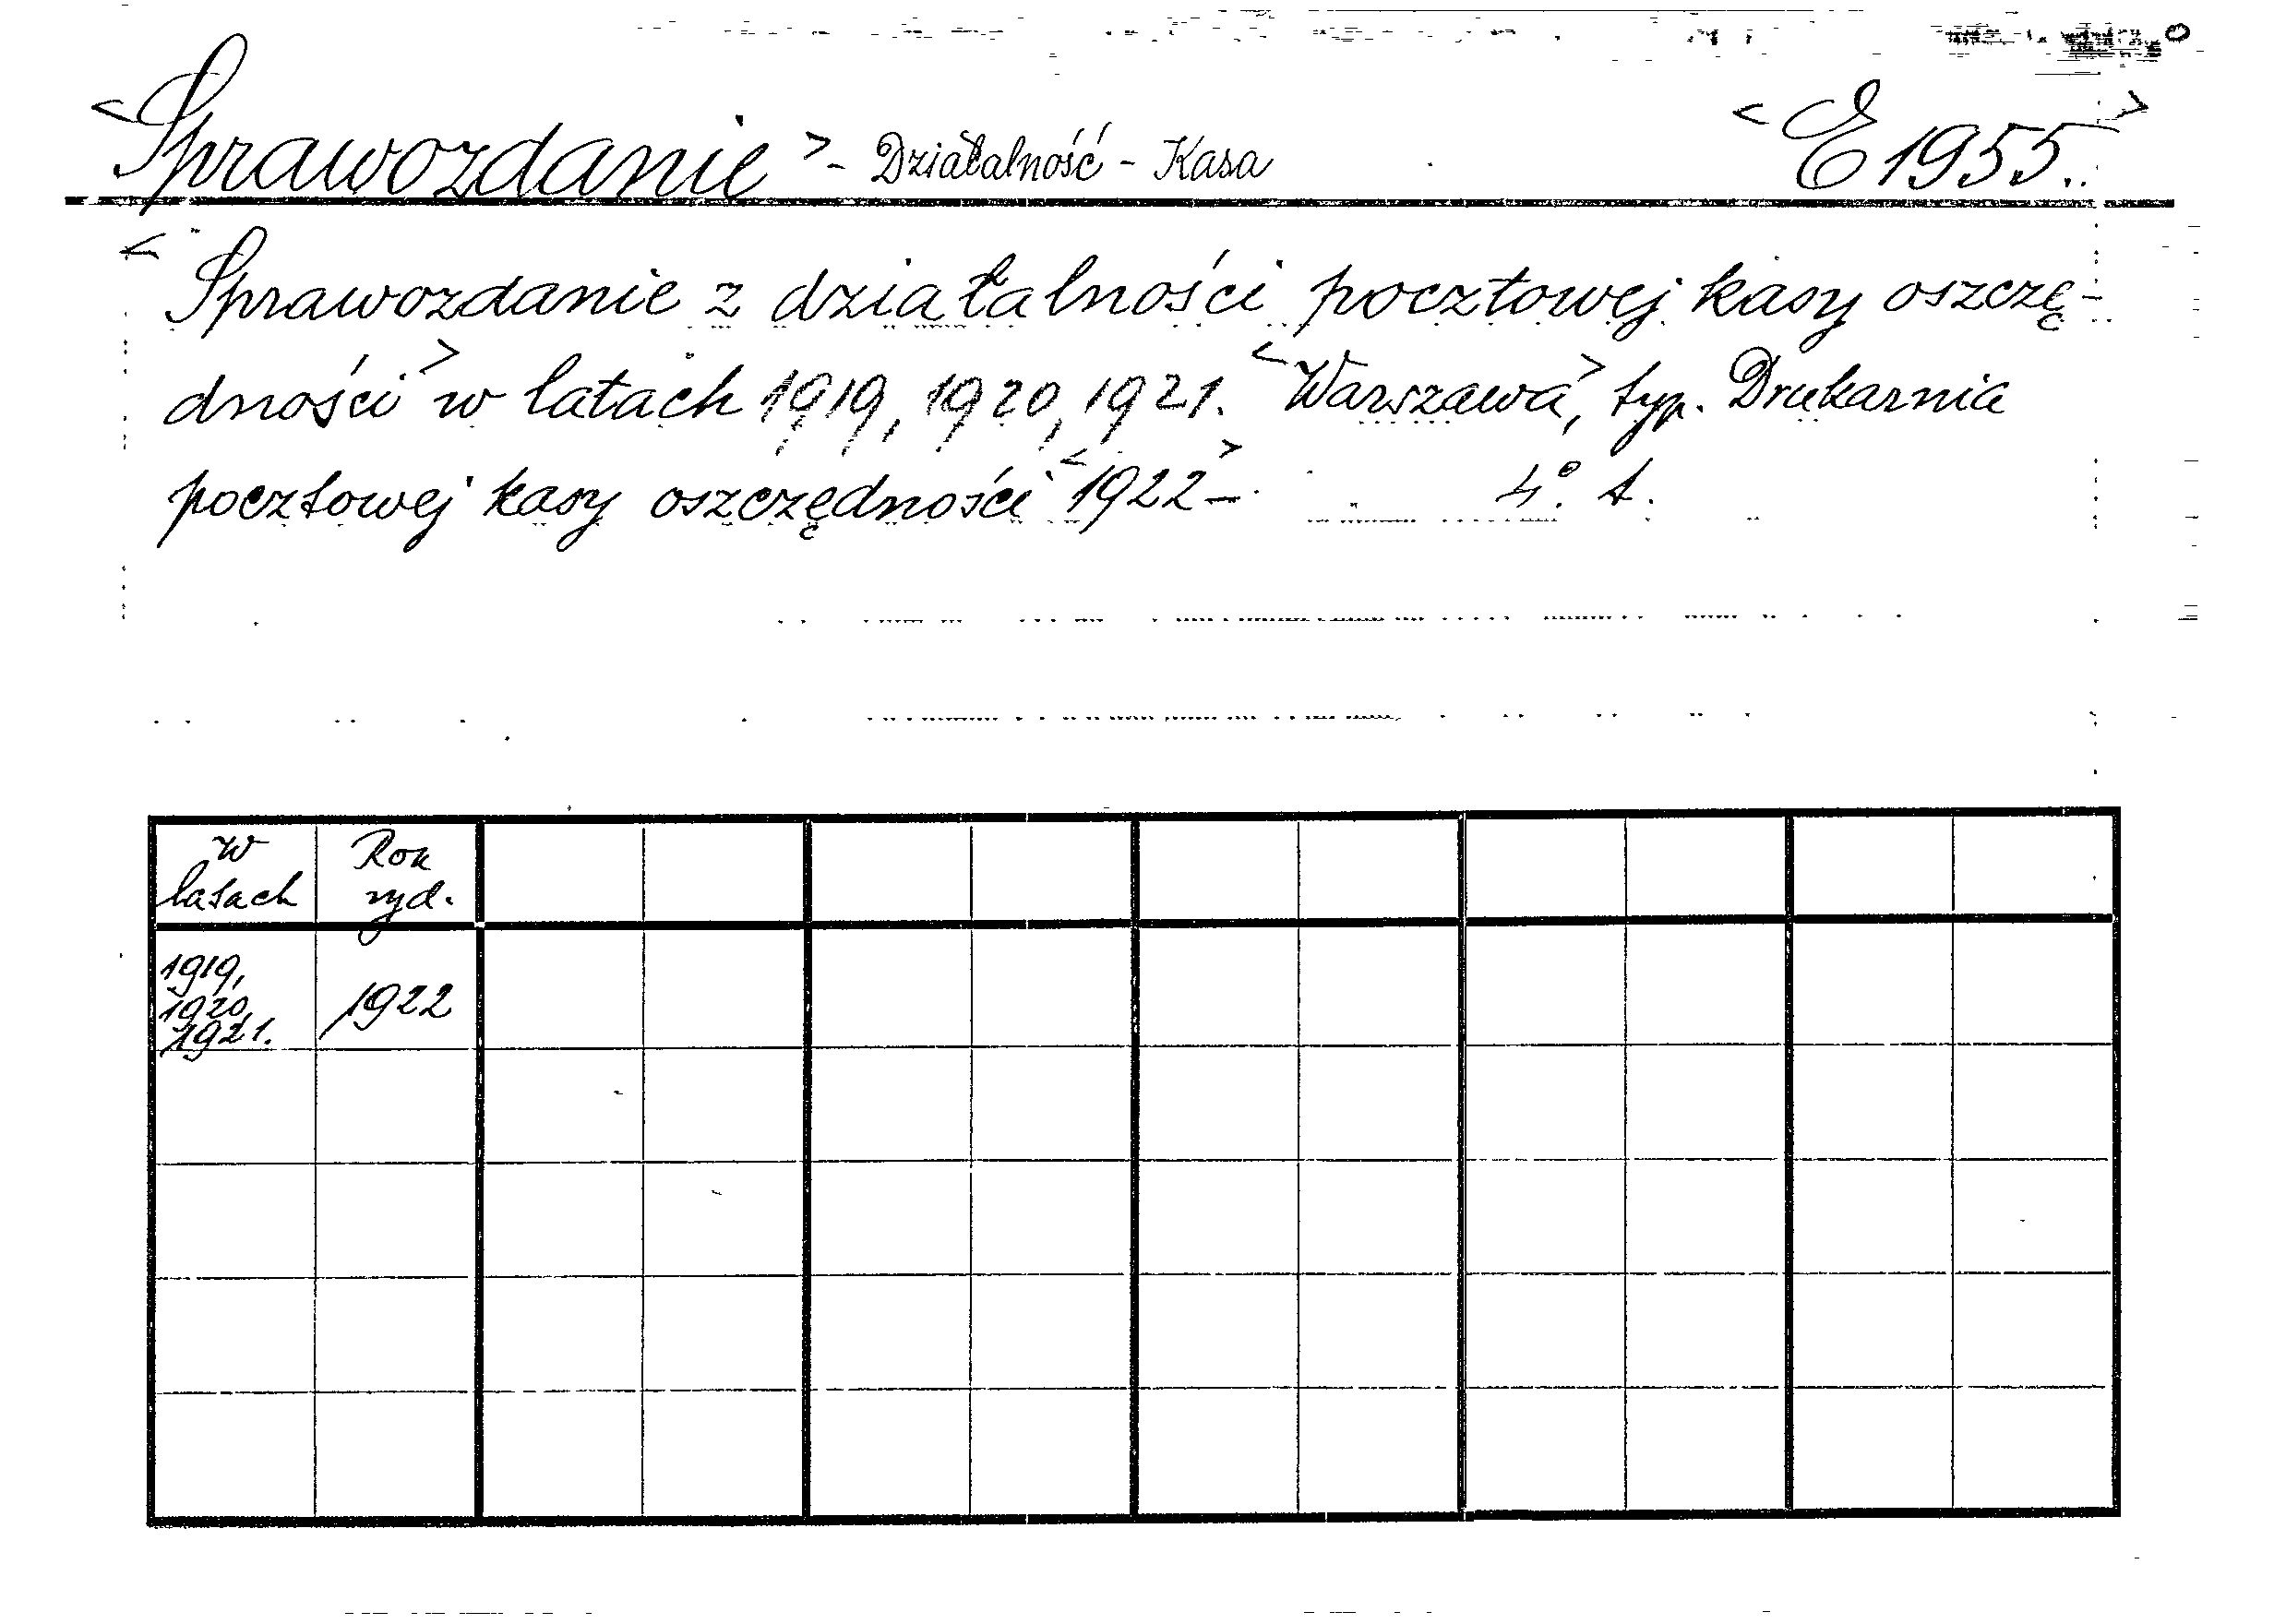 <Sprawozdanie> - Działalność - Kasa <E 1955.>
<Sprawozdanie z działalności pocztowej kasy oszczę-
dności> w latach 1919, 1920, 1921. <Warszawa>, typ. Drukarnia
pocztowej kasy oszczędności <1922-> 4°. t.
w
latach
Rok
wyd.
1919,
1920,
1921.
1922